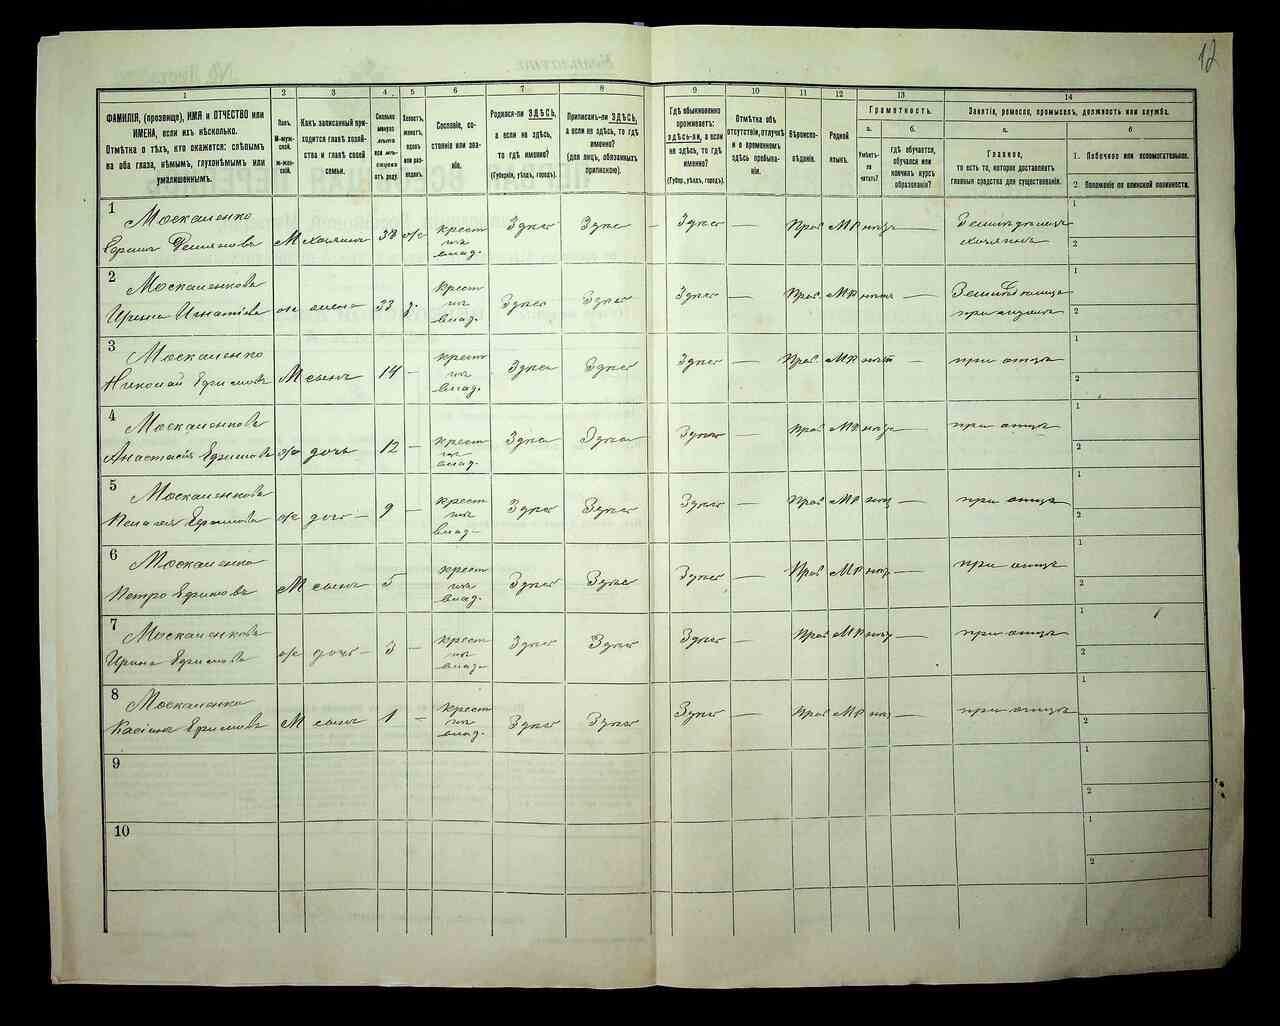 12
1
2
3
4
5
6
7
8
9
10
11
12
13
14
ФАМИЛІЯ, (прозвище), ИМЯ и ОТЧЕСТВО или
ИМЕНА, если ихъ нѣсколько.
Отмѣтка о тѣхъ, кто окажется: слѣпымъ
на оба глаза, нѣмымъ, глухонѣмымъ или
умалишеннымъ.
Полъ.
М-муж-
ской.
Ж-жен-
скій.
Какъ записанный при-
ходится главѣ хозяй-
ства и главѣ своей
семьи.
Сколько
минуло
лѣтъ
или мѣ-
сяцевъ
отъ роду.
Холостъ,
женатъ,
вдовъ
или раз-
веденъ.
Сословіе, со-
стояніе или зва-
ніе.
Родился-ли ЗДѢСЬ,
а если не здѣсь,
то гдѣ именно?
(Губернія, уѣздъ, городъ).
Приписанъ-ли ЗДѢСЬ,
а если не здѣсь, то гдѣ
именно?
(для лицъ, обязанныхъ
припискою).
Гдѣ обыкновенно
проживаетъ:
здѣсь-ли, а если
не здѣсь, то гдѣ
именно?
(Губер., уѣздъ, городъ).
Отмѣтка объ
отсутствіи, отлучкѣ
и о временномъ
здѣсь пребыва-
ніи.
Вѣроиспо-
вѣданіе.
Родной
языкъ.
Грамотность.
а.
б.
Умѣетъ-
ли
читать?
гдѣ обучается,
обучался или
кончилъ курсъ
образованія?
Занятіе, ремесло, промыселъ, должность или служба.
а.
б
Главное,
то есть то, которое доставляетъ
главныя средства для существованія.
1. Побочное или вспомогательное.
2. Положеніе по воинской повинности.
1
Москаленко
Ефимъ Демяновъ
М хозяинъ 38 ж
крест
изъ
влад.
Здѣсь Здѣсь — Здѣсь — Прав. МР нѣтъ —
Земледѣлецъ
хозяинъ
1
2
2
Москаленкова
Ирина Игнатіева
ж жена 33 з.
крест
изъ
влад.
Здѣсь Здѣсь Здѣсь — Прав. МР нѣтъ —
1
2
3
Москаленко
Николай Ефимовъ
М сынъ 14 —
крест
изъ
влад.
Здѣсь Здѣсь Здѣсь — Прав. МР нѣтъ — при отцѣ
1
2
4
Москаленкова
Анастасія Ефимова
ж дочь 12 —
крест
изъ
влад.
Здѣсь Здѣсь Здѣсь — Прав. МР нѣтъ — при отцѣ
1
2
5
Москаленкова
Пелагея Ефимова
ж дочь — 9 —
крест
изъ
влад —
Здѣсь Здѣсь Здѣсь — Прав МР нѣтъ — при отцѣ
1
2
6
Москаленко
Петро Ефимовъ
М сынъ 5 —
крест
изъ
влад.
Здѣсь Здѣсь Здѣсь — Прав МР нѣтъ — при отцѣ
1
2
7
Москаленкова
Ирина Ефимова
ж дочь — 3 —
крест
изъ
влад —
Здѣсь Здѣсь Здѣсь — Прав МР нѣтъ — при отцѣ
1
2
8
Москаленко
Ефимовъ
М сынъ 1 —
крест
изъ
влад.
Здѣсь Здѣсь Здѣсь — Прав МР нѣтъ — при отцѣ
1
2
9
1
2
10
1
2